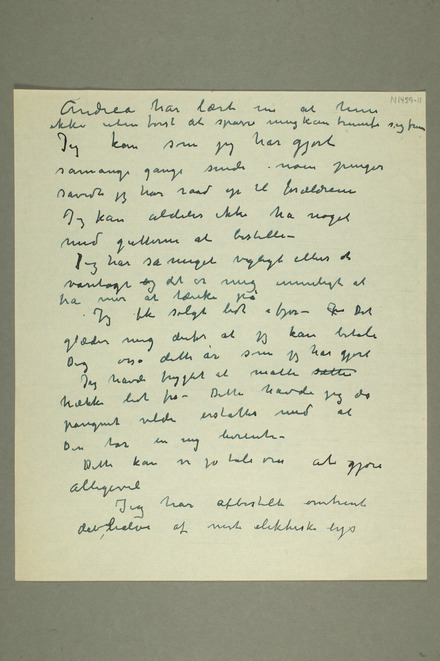 N1499-11
Andrea har lært nu at hun
ikke uden først at spørre mug kan trumfe sig frem
Jeg kan som jeg har gjort
saamange gange sende noen penger
saavidt jeg har raad op til Forældrene
Jeg kan aldeles ikke ha noget
med gutterne at bestille –
Jeg har saa meget vigtigt ellers at
varetage og det er mig umuligt at
ha mer at tænke på
Jeg fik solgt lidt – Det
glæder mig derfor at jeg kan betale
Dig også dette år som jeg har gjort
Jeg havde frygtet at måtte sætte
trække lidt fra – Dette havde jeg da
erstattet med at
Du tar en ny
Dette kan vi jo tale om at gjøre
alligevel
Jeg har afbestilt omtrent
det halve af mit elektriske lys